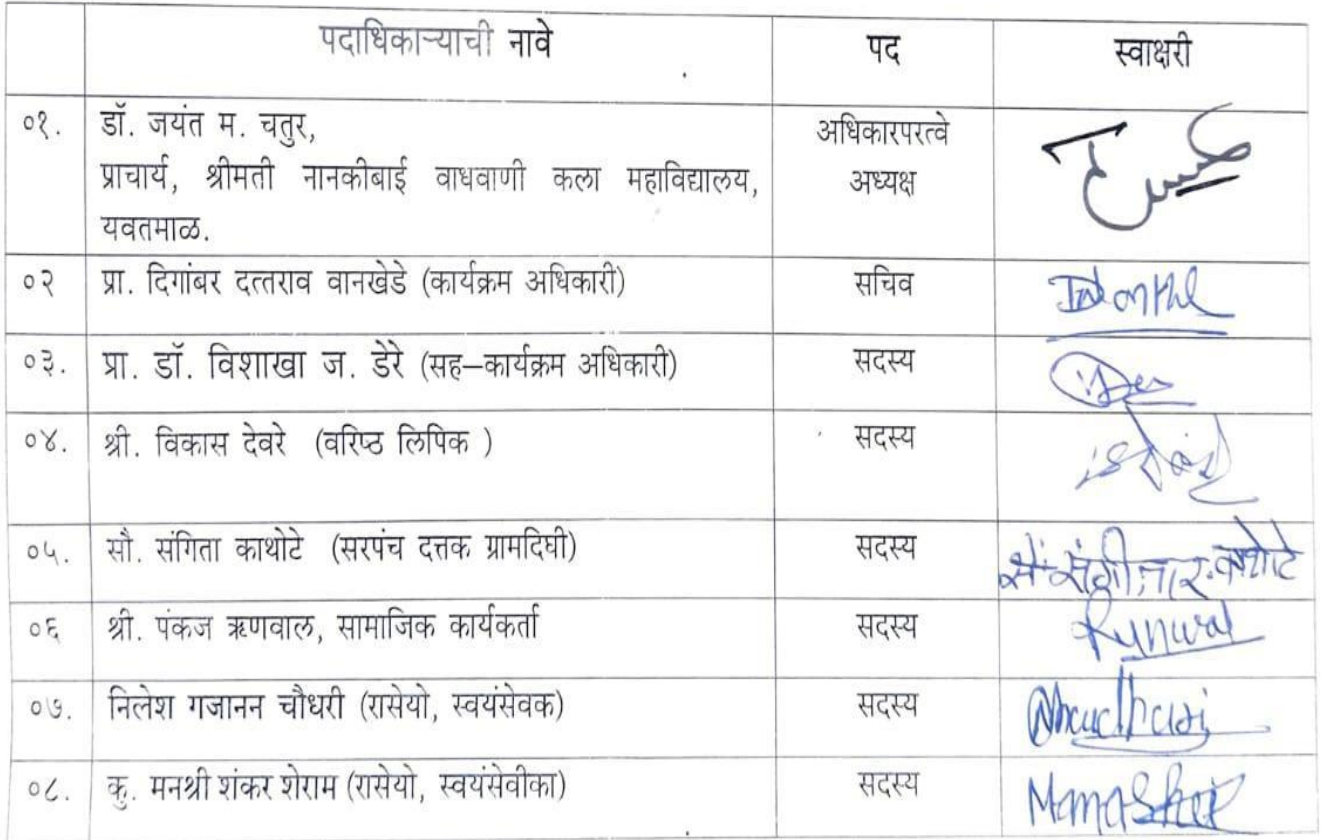 पदाधिकाऱ्याची नावे पद स्वाक्षरी
०१. डॉ. जयंत म. चतुर, अधिकारपरत्वे
प्राचार्य, श्रीमती नानकीबाई वाधवाणी कला महाविद्यालय, अध्यक्ष
यवतमाळ.
०२ प्रा. दिगांबर दत्तराव वानखेडे (कार्यक्रम अधिकारी) सचिव
०३. प्रा. डॉ. विशाखा ज. डेरे (सह–कार्यक्रम अधिकारी) सदस्य
०४. श्री. विकास देवरे (वरिष्ठ लिपिक ) सदस्य
०५. सौ. संगिता काथोटे (सरपंच दत्तक ग्रामदिघी) सदस्य सौ. संगीता र. काथोटे
०६ श्री. पंकज ऋणवाल, सामाजिक कार्यकर्ता सदस्य
०७. निलेश गजानन चौधरी (रासेयो, स्वयंसेवक) सदस्य
०८. कु. मनश्री शंकर शेराम (रासेयो, स्वयंसेवीका) सदस्य